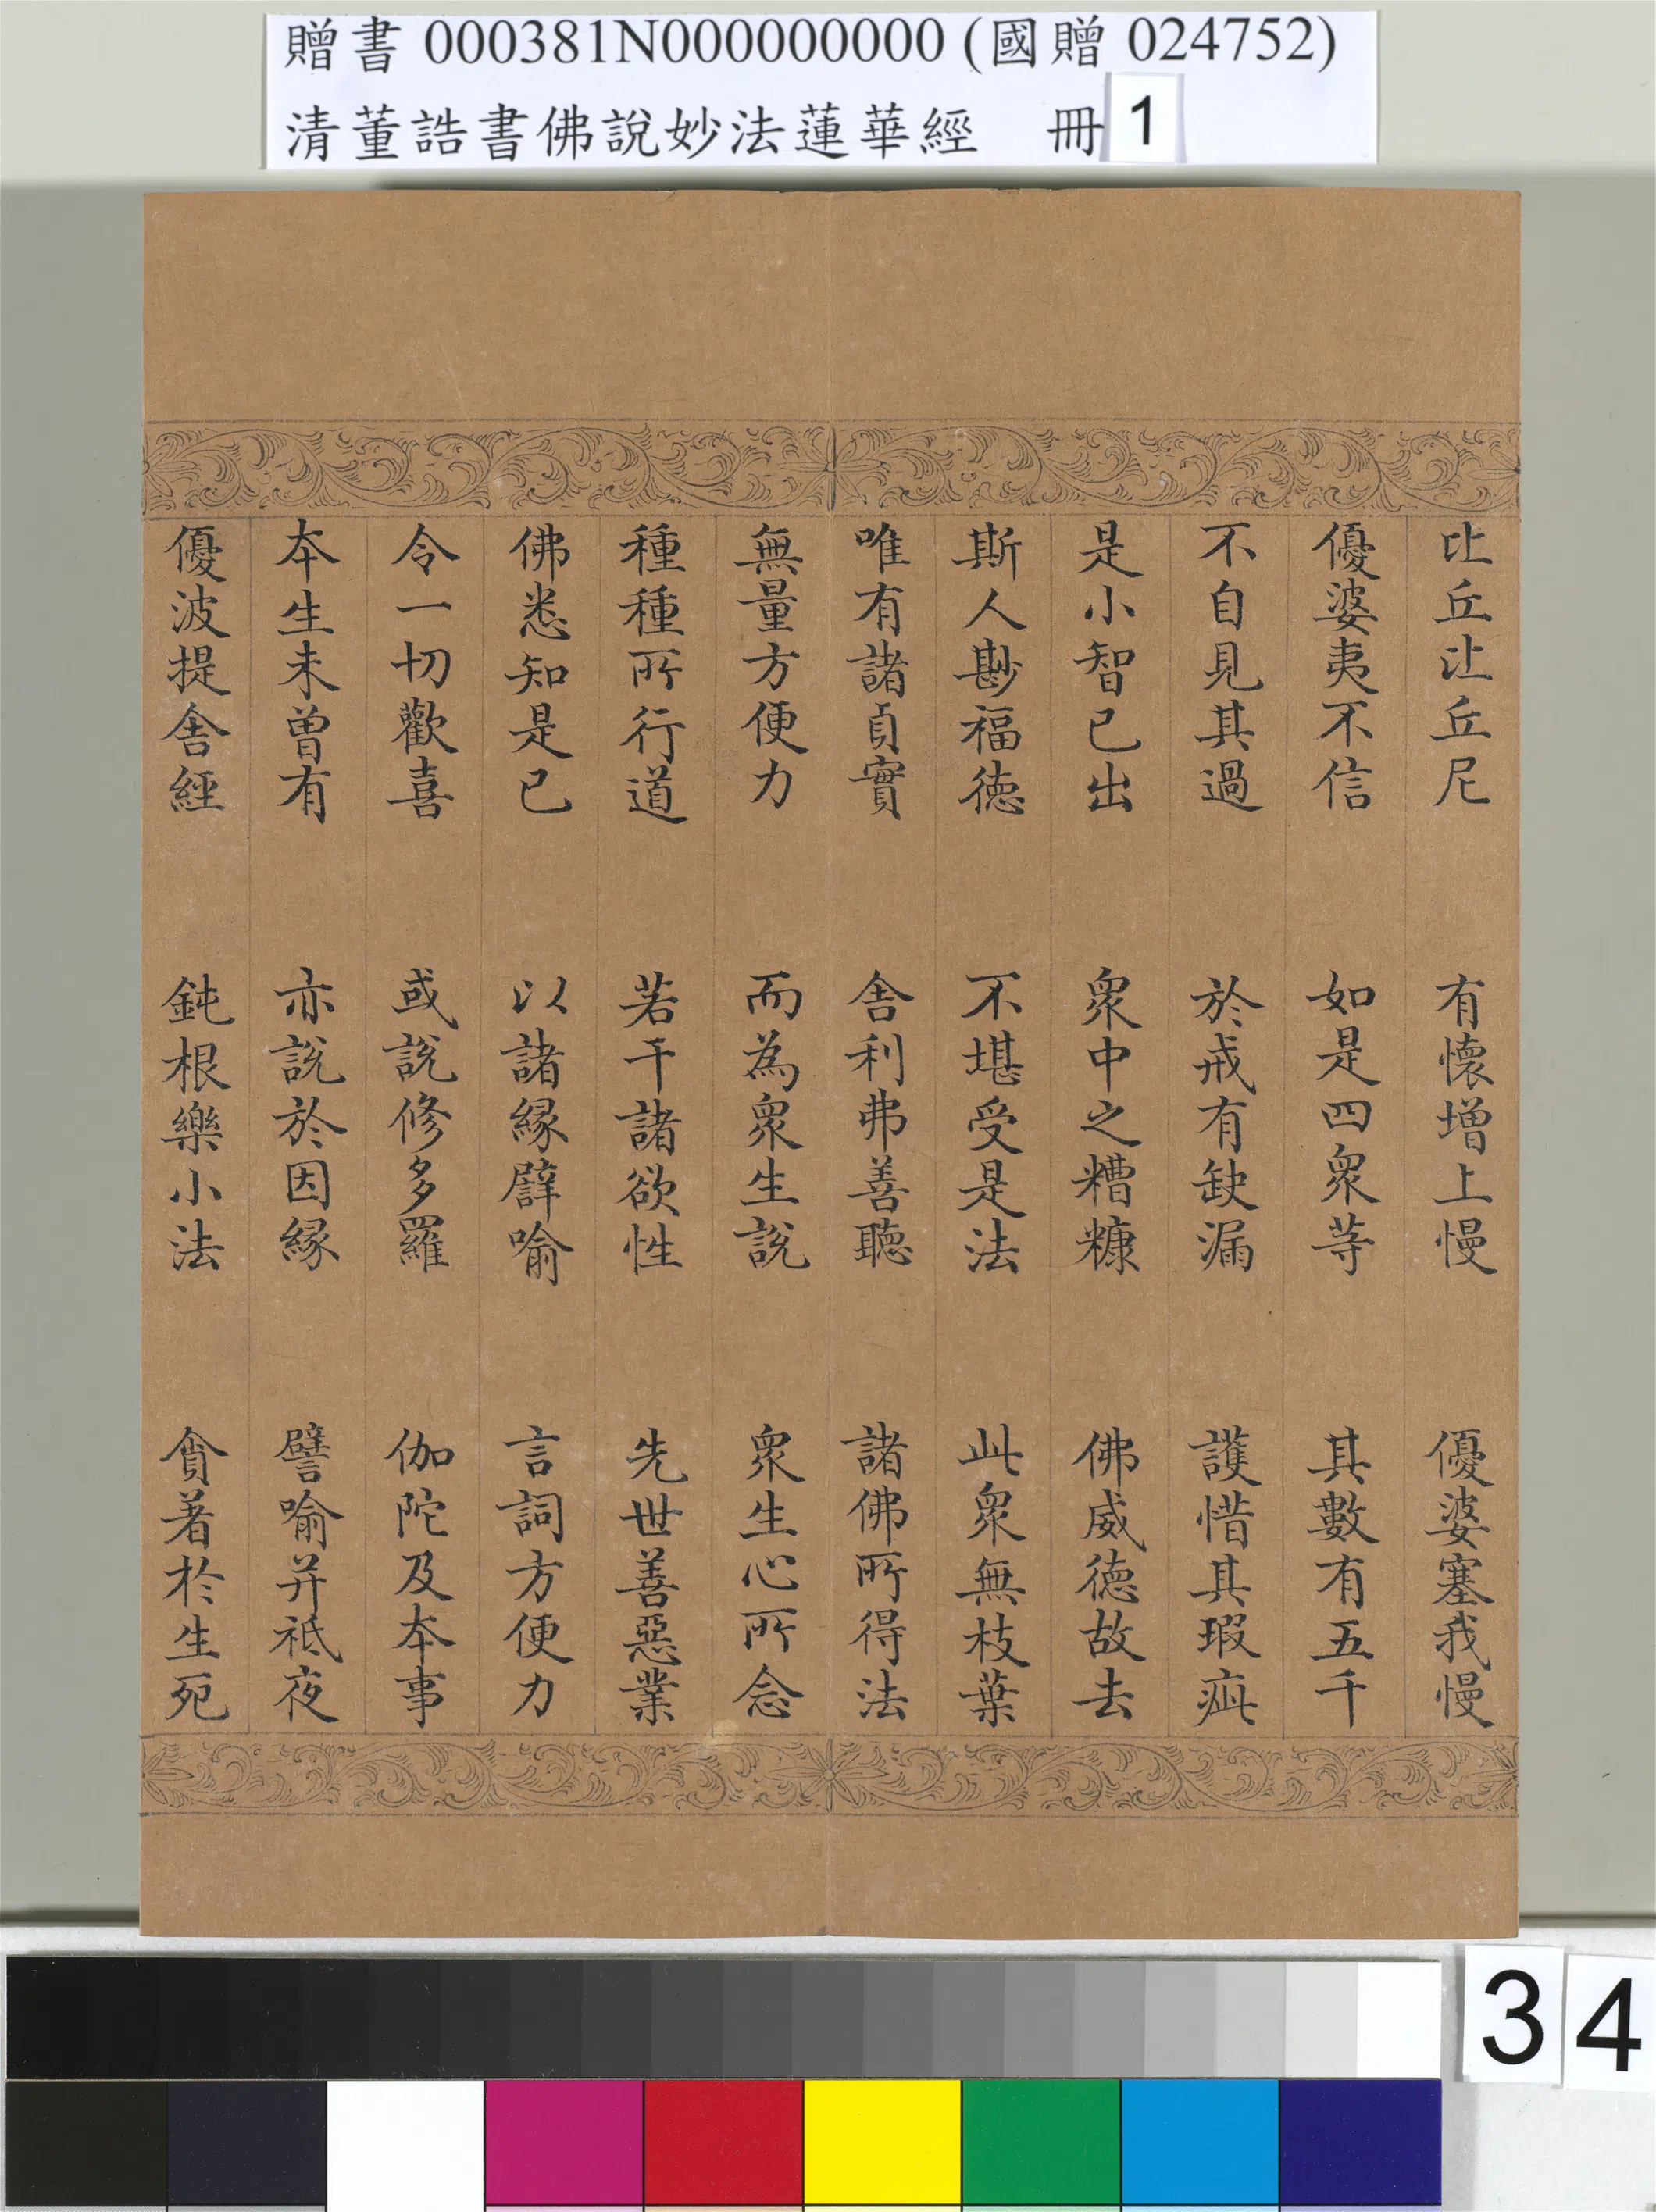 贈書 000381N000000000 (國贈 024752)
清董誥書佛說妙法蓮華經 冊 1
比丘比丘尼 有懷增上慢 優婆塞我慢
優婆夷不信 如是四眾等 其數有五千
不自見其過 於戒有缺漏 護惜其瑕疵
是小智已出 眾中之糟糠 佛威德故去
斯人尠福德 不堪受是法 此眾無枝葉
唯有諸貞實 舍利弗善聽 諸佛所得法
無量方便力 而為眾生說 眾生心所念
種種所行道 若干諸欲性 先世善惡業
佛悉知是已 以諸緣譬喻 言詞方便力
令一切歡喜 或說修多羅 伽陀及本事
本生未曾有 亦說於因緣 譬喻并祇夜
優波提舍經 鈍根樂小法 貪著於生死
34